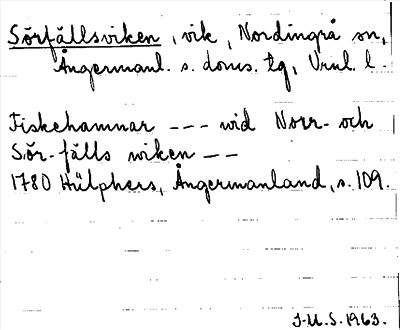 Sörfällsviken, vik, Nordingrå sn,
Ångermanl. s. doms. tg, Vrnl. l.
Fiskehamnar --- wid Norr- och
Sör-fälls wiken --
1780 Hülphers, Ångermanland, s. 109.
J-U.S. 1963.